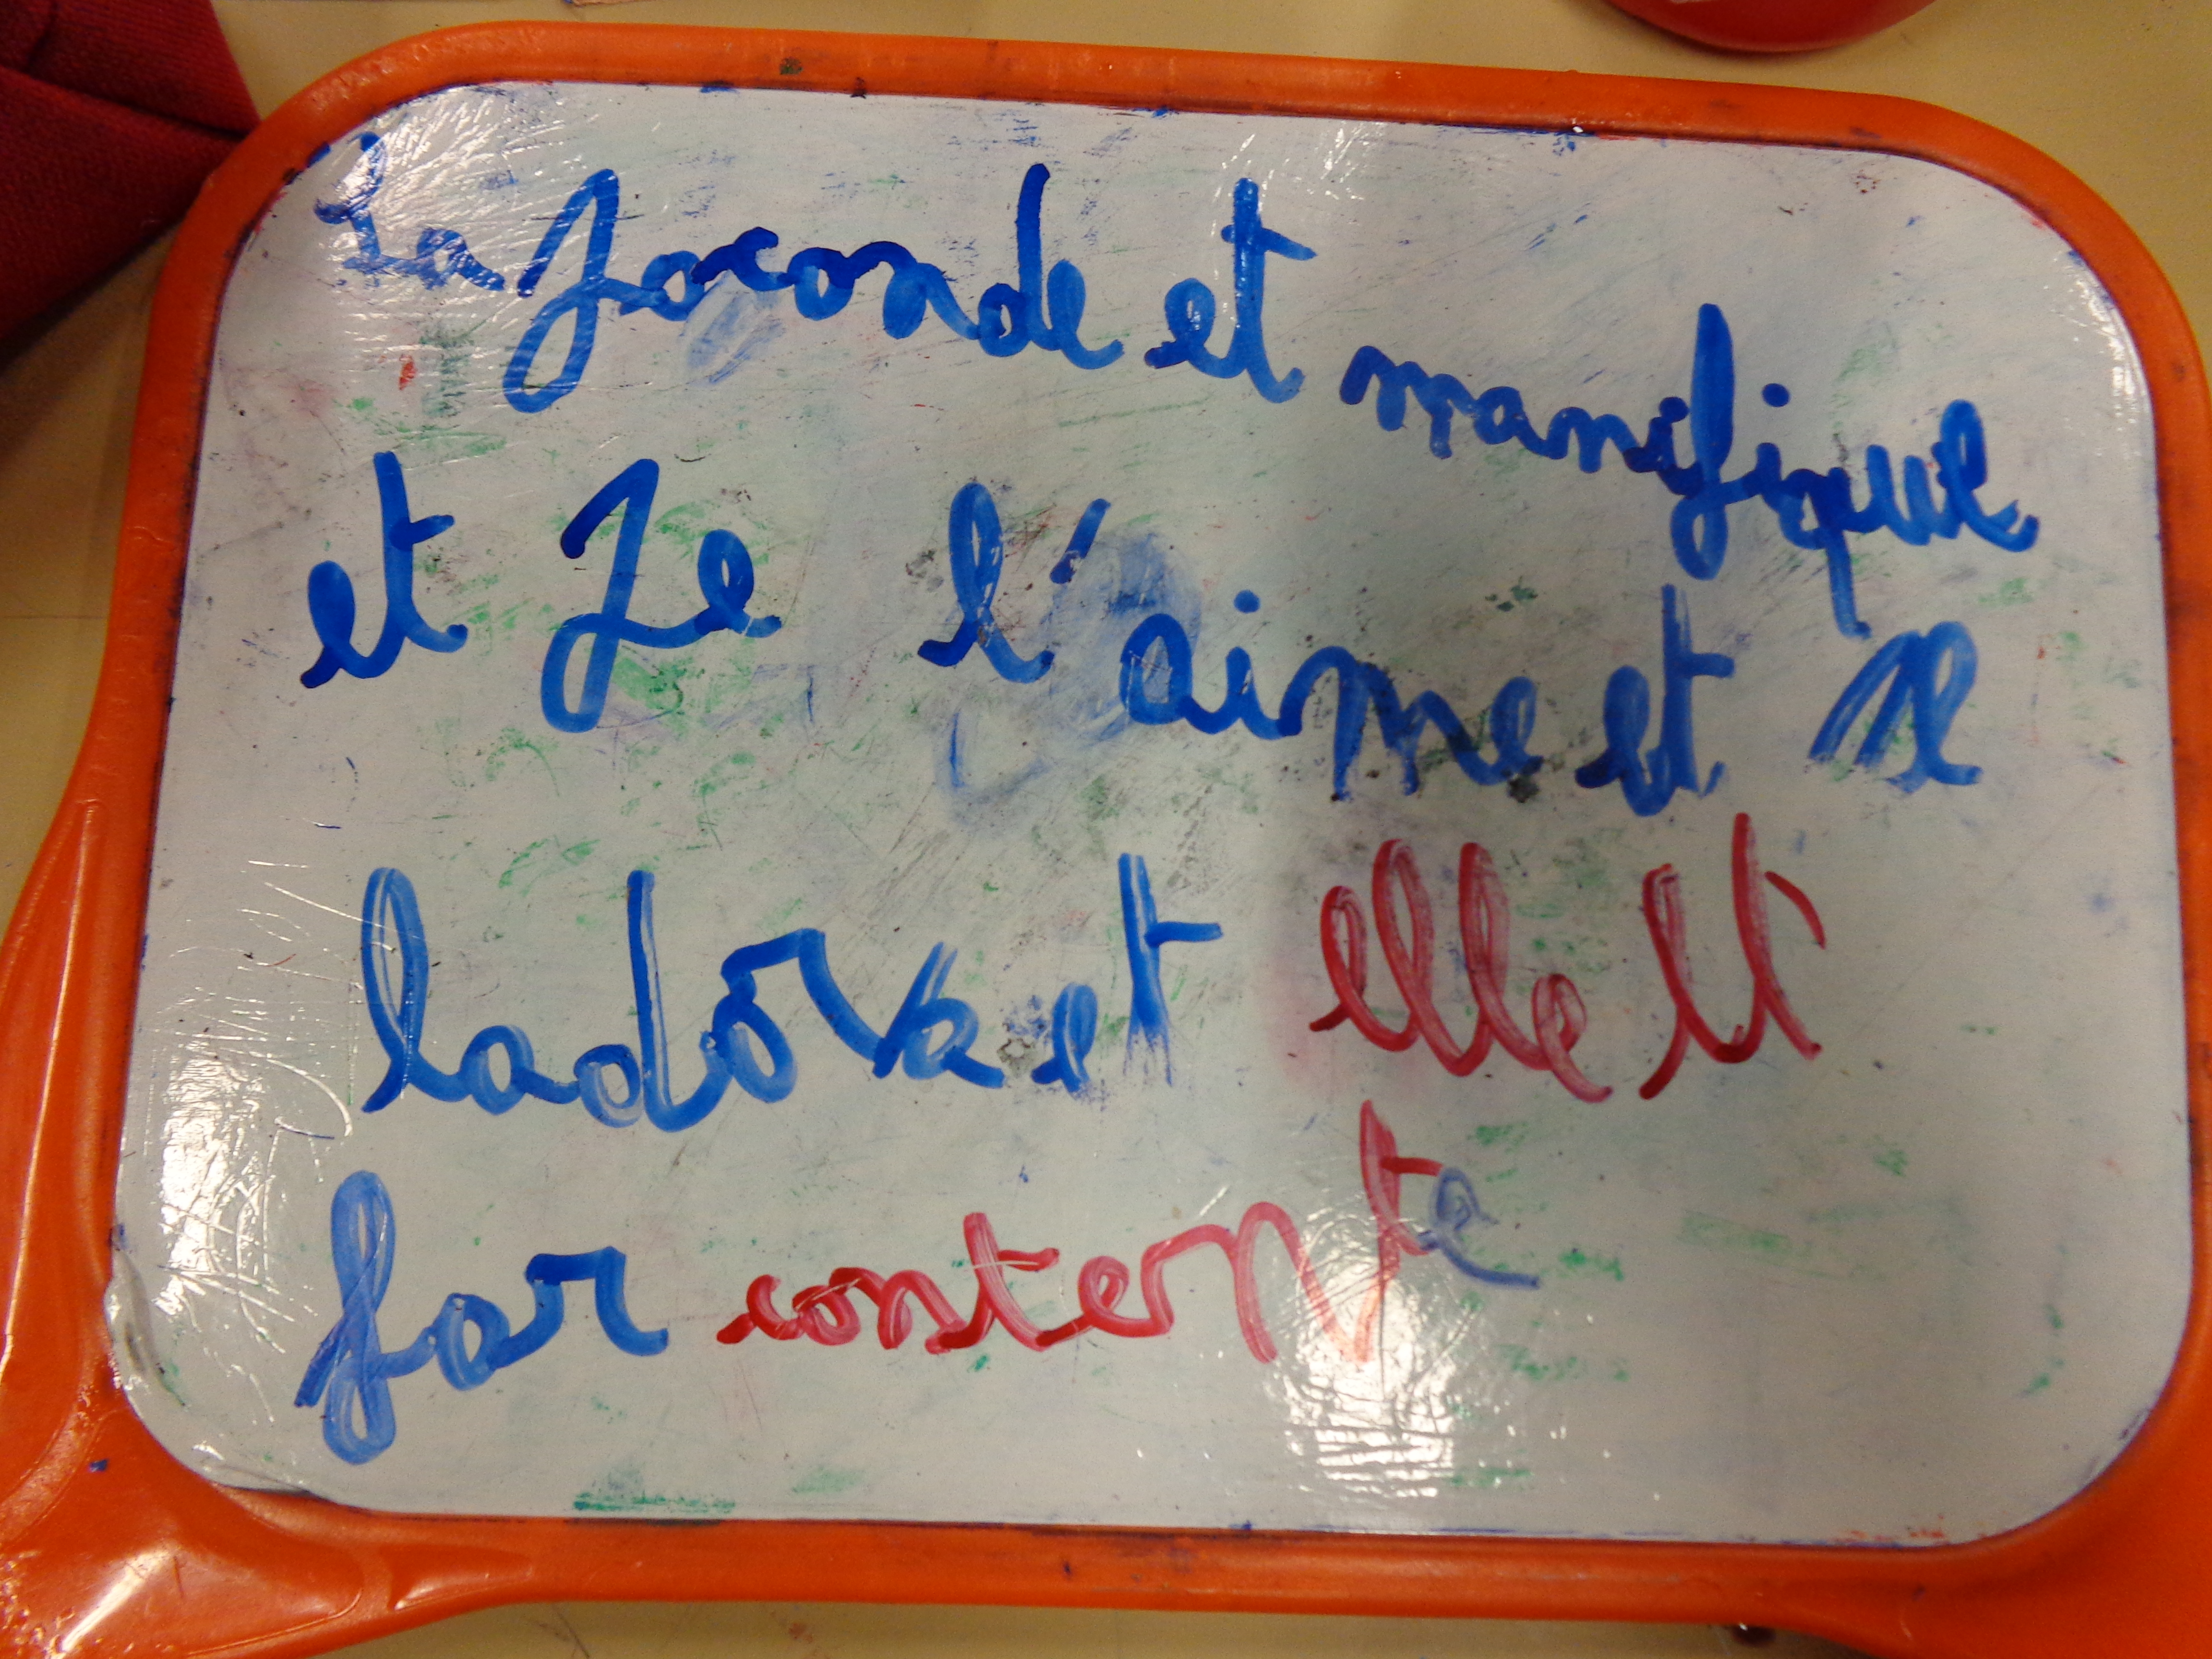 La Joconde et manifique
et Je l'aime et Je
ladore et elle et
for contente